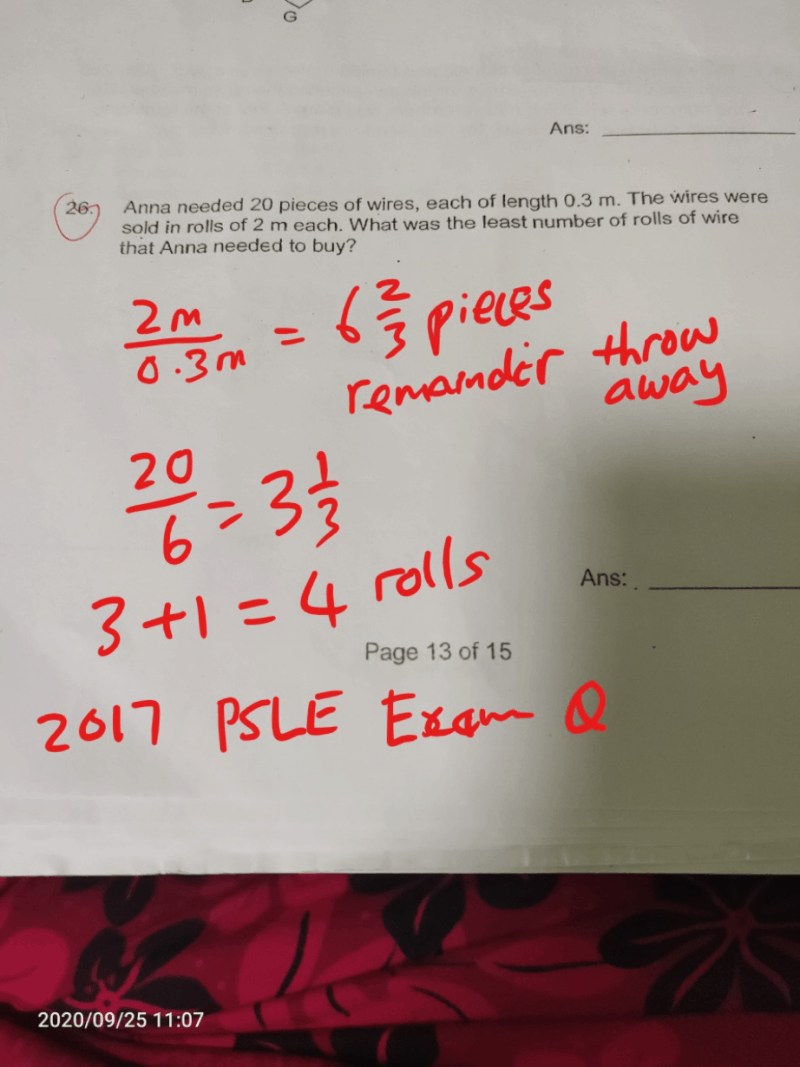 G
Ans:
26.
Anna needed 20 pieces of wires, each of length 0.3 m. The wires were
sold in rolls of 2 m each. What was the least number of rolls of wire
that Anna needed to buy?
2m/0.3m = 6 2/3 pieces
remainder throw
away
20/6 = 3 1/3
3+1 = 4 rolls
Ans:
Page 13 of 15
2017 PSLE Exam Q
2020/09/25 11:07